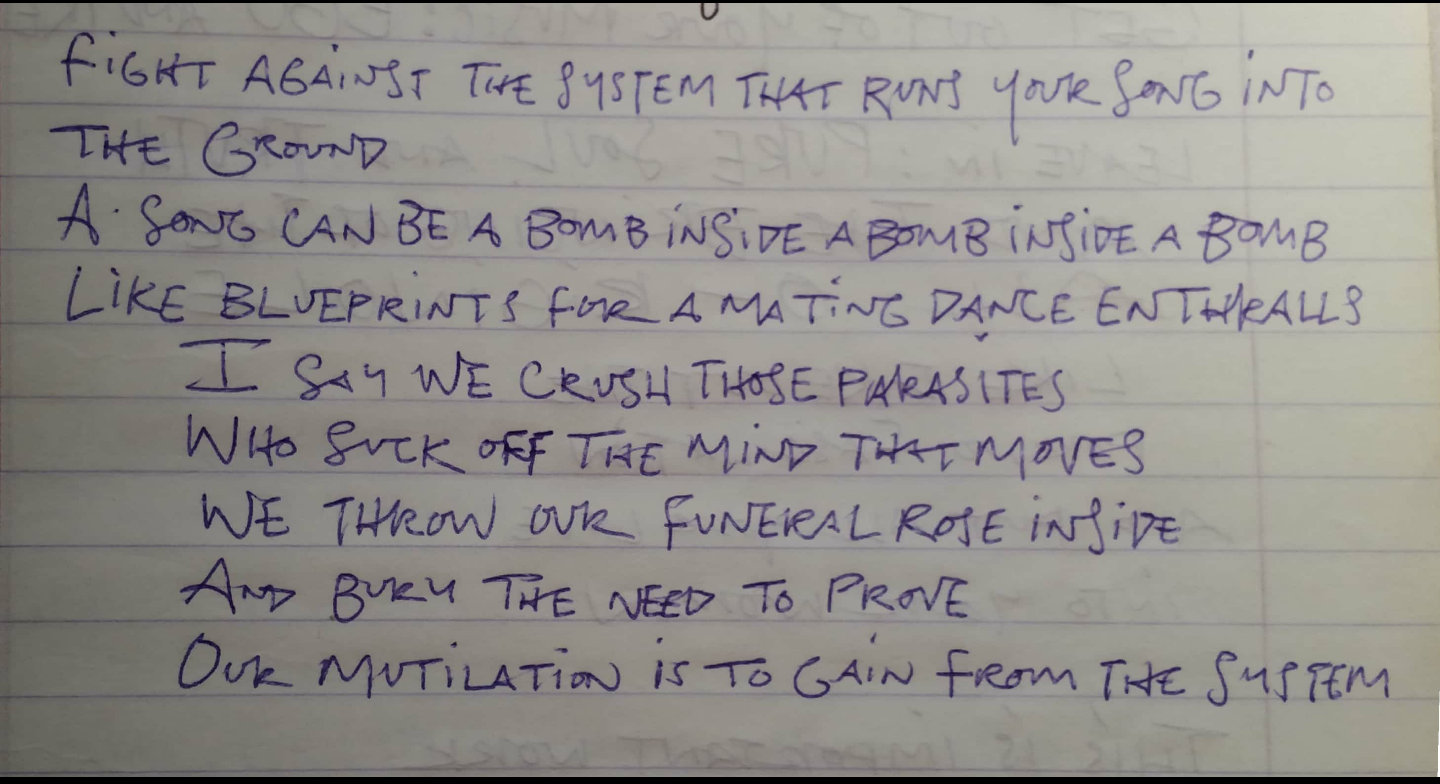 FIGHT AGAINST THE SYSTEM THAT RUNS YOUR SONG INTO
THE GROUND
A SONG CAN BE A BOMB INSIDE A BOMB INSIDE A BOMB
LIKE BLUEPRINTS FOR A MATING DANCE ENTHRALLS
I SAY WE CRUSH THOSE PARASITES
WHO SUCK OFF THE MIND THAT MOVES
WE THROW OUR FUNERAL ROSE INSIDE
AND BURY THE NEED TO PROVE
OUR MUTILATION IS TO GAIN FROM THE SYSTEM